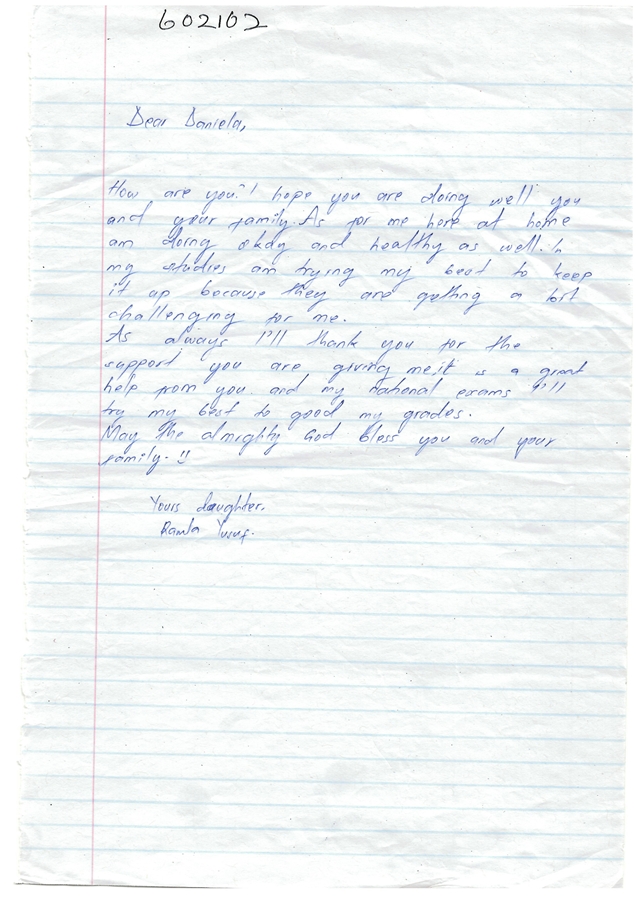 602102
Dear Daniela,
How are you? I hope you are doing well you
and your family. As for me here at home
am doing okay and healthy as well. In
my studies am trying my best to keep
it up because they are getting a bit
challenging for me.
As always I'll thank you for the
support you are giving me, it is a great
help from you and my national exams I'll
try my best to good my grades.
May the almighty God bless you and your
family. !!
Yours daughter.
Ramla Yusuf.